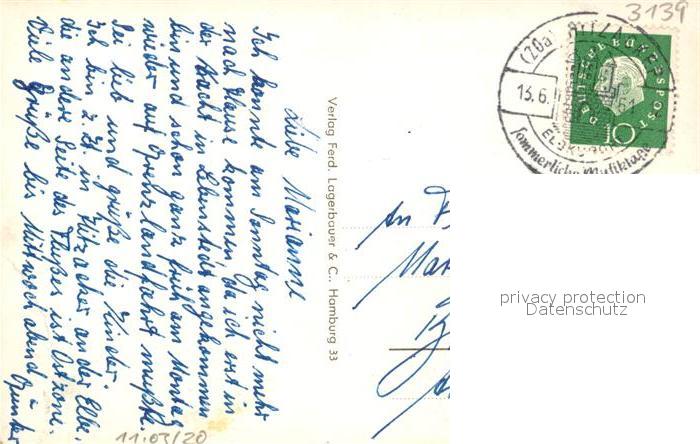 Liebe Marianne
Ich konnte am Sonntag nicht mehr
nach Hause kommen, da ich erst in
der Nacht in angekommen
bin und schon ganz früh am Montag
wieder auf Grenzlandfahrt mußte.
Sei lieb und grüße die Kinder.
Ich bin z. Zt. in Hitzacker an der Elbe.
die andere Seite des Flußes ist Ostzone.
Viele Grüße bis Mittwoch abend
Günter
Verlag Ferd. Lagerbauer & C., Hamburg 33
An
Mar
3139
(20a) HITZACKER
13.6.
sommerliche Musiktage
DEUTSCHE BUNDESPOST
10
privacy protection
Datenschutz
11.03/20